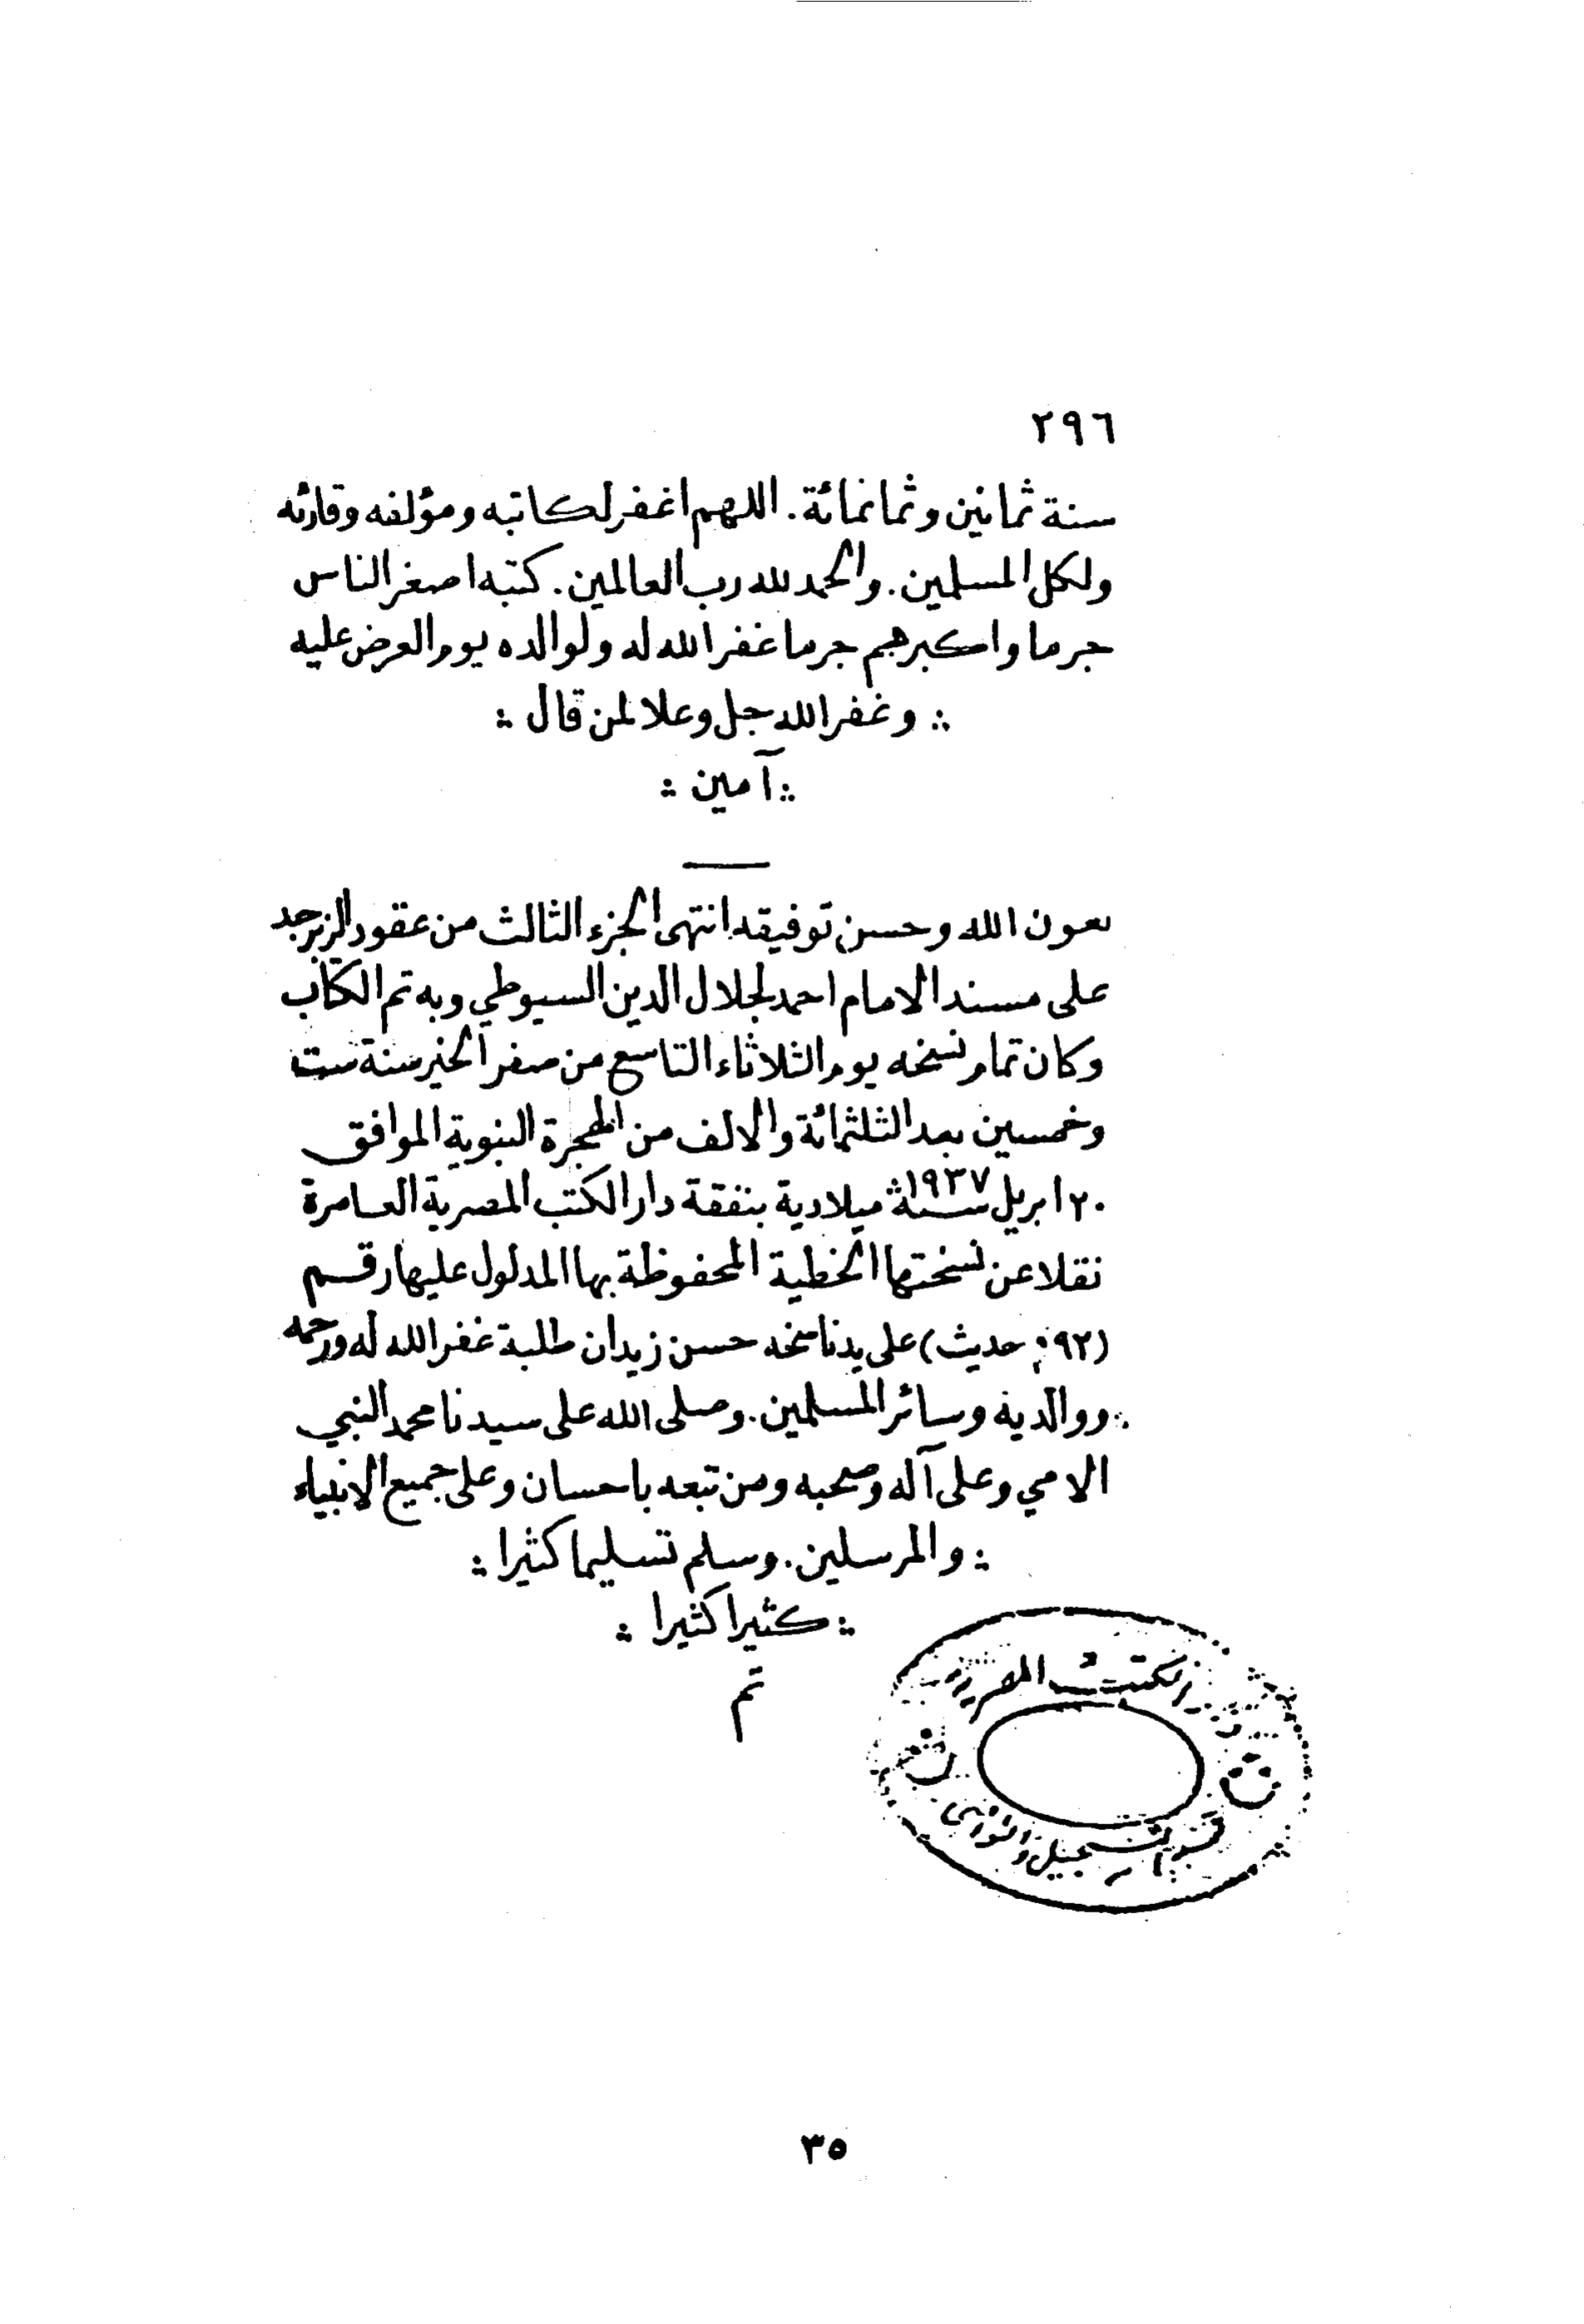 ٢٩٦
سنة ثمانين وثمانمائة. اللهم اغفر لكاتبه ومؤلفه وقارئه
ولكل المسلمين. والحمد لله رب العالمين. كتبه اصغر الناس
جرما واكبرهم جرما غفر الله له ولوالده يوم العرض عليه
وغفر الله جل وعلا لمن قال
آمين
بعون الله وحسن توفيقه انتهى الجزء الثالث من عقود الزبرجد
على مسند الامام احمد لجلال الدين السيوطي وبه تم الكتاب
وكان تمام نسخه يوم الثلاثاء التاسع من صفر الخير سنة ست
وخمسين بعد الثلثمائة والالف من الهجرة النبوية الموافق
٢٠ ابريل سنة ١٩٣٧ ميلادية بنفقة دار الكتب المصرية العامرة
نقلا عن نسختها الخطية المحفوظة بها المدلول عليها رقم
حديث) على يد ناسخه حسن زيدان طلبة غفر الله له ورحمه
ووالديه وسائر المسلمين. وصلى الله على سيدنا محمد النبي
الامي وعلى آله وصحبه ومن تبعه باحسان وعلى جميع الانبياء
والمرسلين. وسلم تسليما كثيرا
كثيرا كثيرا
تم
المصرية
٣٥